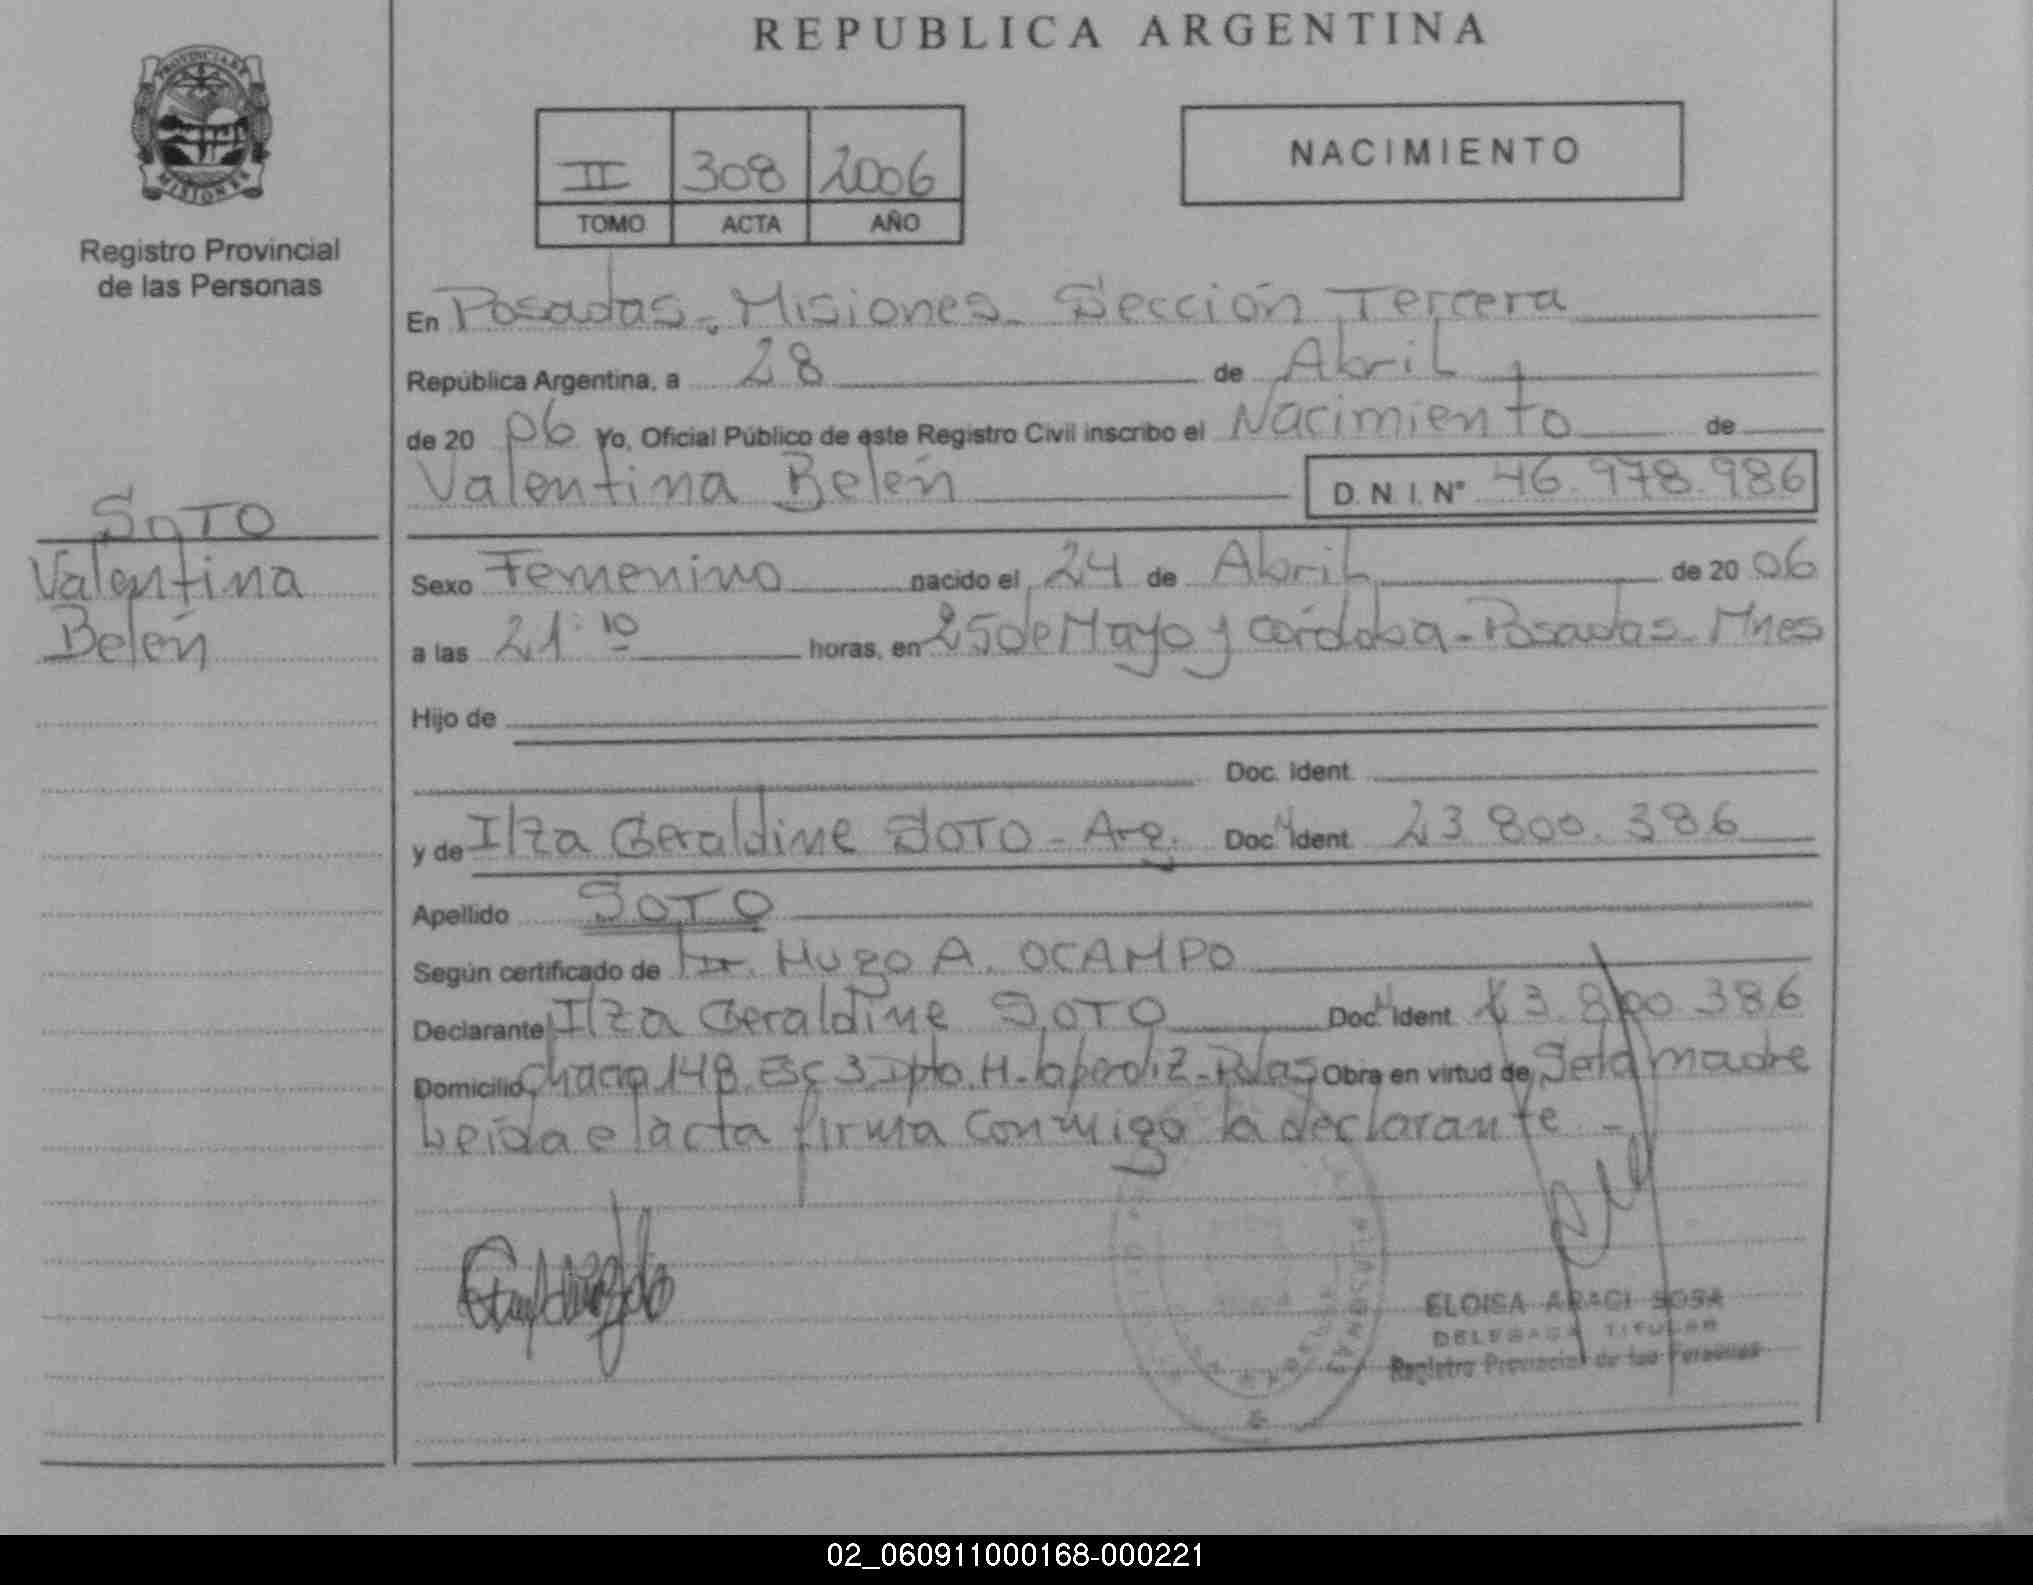 REPUBLICA ARGENTINA
PROVINCIA DE
MISIONES
Registro Provincial
de las Personas
II 308 2006
TOMO ACTA AÑO
NACIMIENTO
En Posadas. Misiones. Sección Tercera
República Argentina, a 28 de Abril
de 20 06 Yo, Oficial Público de este Registro Civil inscribo el Nacimiento de
Valentina Belén D.N.I. N° 46.978.986
SOTO
Valentina
Belén
Sexo Femenino nacido el 24 de Abril de 20 06
a las 21:10 horas, en 25 de Mayo y Córdoba - Posadas - Mnes
Hijo de
Doc. Ident.
y de Ilza Geraldine SOTO - Arg. Doc. Ident. 23.800.386
Apellido SOTO
Según certificado de Dr. Hugo A. OCAMPO
Declarante Ilza Geraldine SOTO Doc. Ident. 23.800.386
Domicilio Chacra 148 Esc 3 Dpto. H. Obra en virtud de madre
Leida el acta firma conmigo la declarante -
ELOISA ARACI SOSA
DELEGADA TITULAR
Registro Provincial de las Personas
02_060911000168-000221